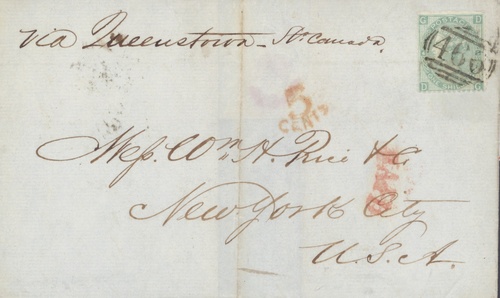 Via Queenstown - Sr. Canada.
G D
POSTAGE
466
D G
5
CENTS
Mess. Wm. H. & Co
New York City
U.S.A.